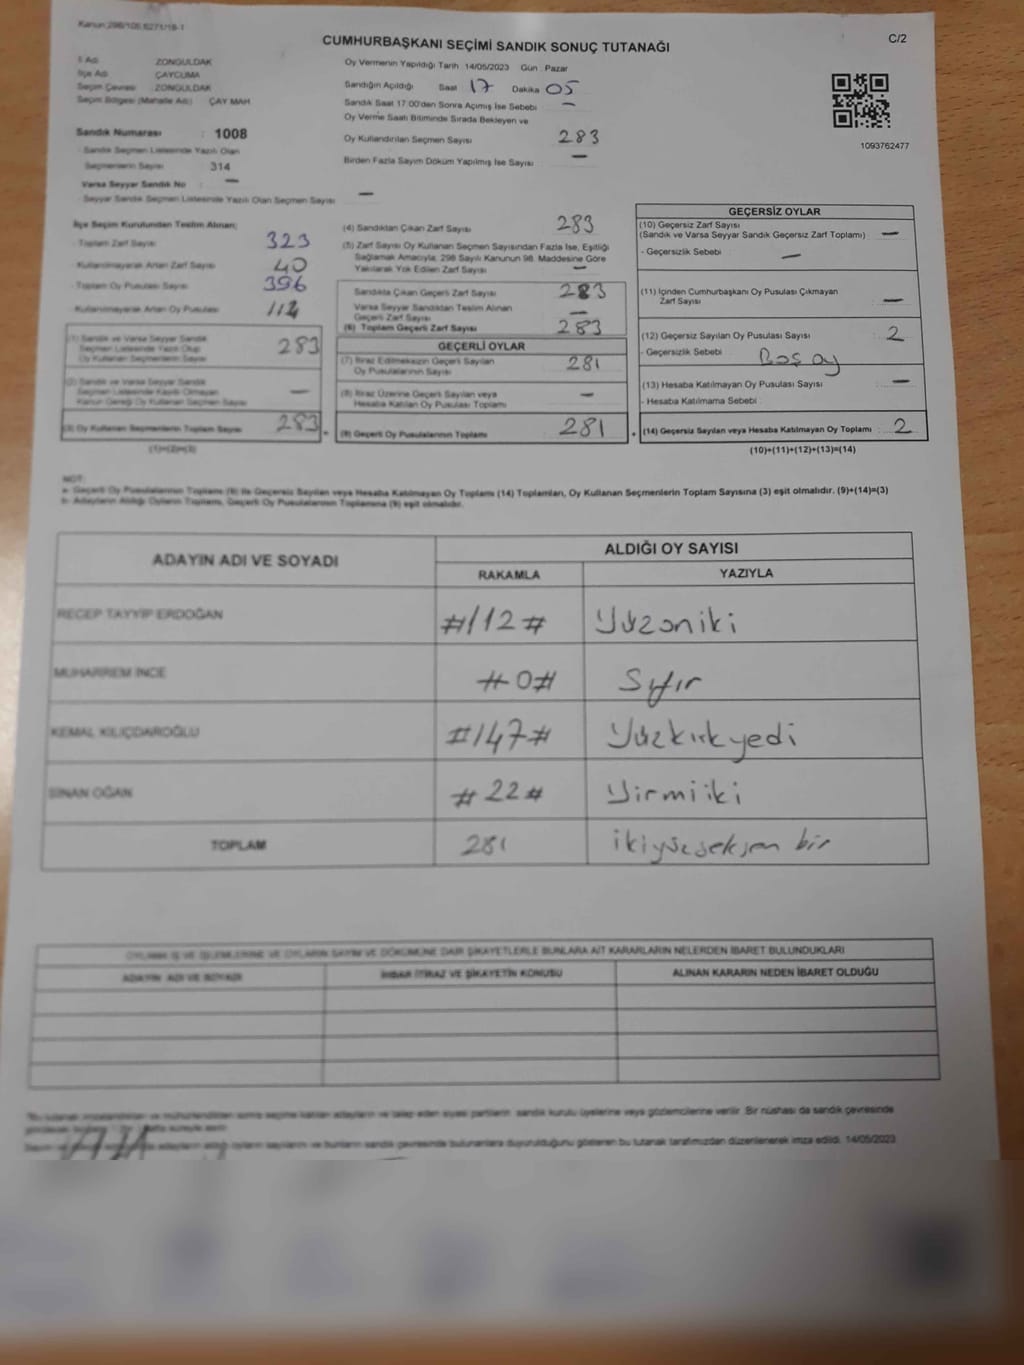 Kanun:298/105,6271/18-1
C/2
CUMHURBAŞKANI SEÇİMİ SANDIK SONUÇ TUTANAĞI
İl Adı ZONGULDAK
İlçe Adı ÇAYCUMA
Seçim Çevresi ZONGULDAK
Seçim Bölgesi (Mahalle Adı) ÇAY MAH
Sandık Numarası : 1008
- Sandık Seçmen Listesinde Yazılı Olan
Seçmenlerin Sayısı 314
Varsa Seyyar Sandık No : —
- Seyyar Sandık Seçmen Listesinde Yazılı Olan Seçmen Sayısı —
Oy Vermenin Yapıldığı Tarih :14/05/2023 Gün : Pazar
Sandığın Açıldığı Saat 17 Dakika 05
Sandık Saat 17.00'den Sonra Açımış İse Sebebi : —
Oy Verme Saati Bitiminde Sırada Bekleyen ve
Oy Kullandırılan Seçmen Sayısı 283
Birden Fazla Sayım Döküm Yapılmış İse Sayısı —
1093762477
İlçe Seçim Kurulundan Teslim Alınan;
- Toplam Zarf Sayısı 323
- Kullanılmayarak Artan Zarf Sayısı 40
- Toplam Oy Pusulası Sayısı 396
- Kullanılmayarak Artan Oy Pusulası 112
(1) Sandık ve Varsa Seyyar Sandık
Seçmen Listesinde Yazılı Olup
Oy Kullanan Seçmenlerin Sayısı 283
(2) Sandık ve Varsa Seyyar Sandık
Seçmen Listesinde Kayıtlı Olmayan
Kanun Gereği Oy Kullanan Seçmen Sayısı —
(3) Oy Kullanan Seçmenlerin Toplam Sayısı 283 =
(1)+(2)=(3)
(4) Sandıktan Çıkan Zarf Sayısı 283
(5) Zarf Sayısı Oy Kullanan Seçmen Sayısından Fazla İse, Eşitliği
Sağlamak Amacıyla, 298 Sayılı Kanunun 98. Maddesine Göre
Yakılarak Yok Edilen Zarf Sayısı —
Sandıkta Çıkan Geçerli Zarf Sayısı 283
Varsa Seyyar Sandıktan Teslim Alınan
Geçerli Zarf Sayısı —
(6) Toplam Geçerli Zarf Sayısı 283
GEÇERLİ OYLAR
(7) İtiraz Edilmeksizin Geçerli Sayılan
Oy Pusulalarının Sayısı 281
(8) İtiraz Üzerine Geçerli Sayılan veya
Hesaba Katılan Oy Pusulası Toplamı —
(9) Geçerli Oy Pusulalarının Toplamı 281 +
GEÇERSİZ OYLAR
(10) Geçersiz Zarf Sayısı
(Sandık ve Varsa Seyyar Sandık Geçersiz Zarf Toplamı) —
- Geçersizlik Sebebi —
(11) İçinden Cumhurbaşkanı Oy Pusulası Çıkmayan
Zarf Sayısı —
(12) Geçersiz Sayılan Oy Pusulası Sayısı : 2
- Geçersizlik Sebebi Boş oy
(13) Hesaba Katılmayan Oy Pusulası Sayısı : —
- Hesaba Katılmama Sebebi :
(14) Geçersiz Sayılan veya Hesaba Katılmayan Oy Toplamı : 2
(10)+(11)+(12)+(13)=(14)
NOT:
a- Geçerli Oy Pusulalarının Toplamı (9) ile Geçersiz Sayılan veya Hesaba Katılmayan Oy Toplamı (14) Toplamları, Oy Kullanan Seçmenlerin Toplam Sayısına (3) eşit olmalıdır. (9)+(14)=(3)
b- Adayların Aldığı Oyların Toplamı, Geçerli Oy Pusulalarının Toplamına (9) eşit olmalıdır.
ADAYIN ADI VE SOYADI
ALDIĞI OY SAYISI
RAKAMLA YAZIYLA
RECEP TAYYİP ERDOĞAN #112# Yüzoniki
MUHARREM İNCE #0# Sıfır
KEMAL KILIÇDAROĞLU #147# Yüzkırkyedi
SİNAN OĞAN #22# Yirmiiki
TOPLAM 281 ikiyüzseksen bir
OYLAMA İŞ VE İŞLEMLERİNE VE OYLARIN SAYIM VE DÖKÜMÜNE DAİR ŞİKAYETLERLE BUNLARA AİT KARARLARIN NELERDEN İBARET BULUNDUKLARI
ADAYIN ADI VE SOYADI İHBAR İTİRAZ VE ŞİKAYETİN KONUSU ALINAN KARARIN NEDEN İBARET OLDUĞU
siyasi partilerin sandık kurulu üyelerine veya gözlemcilerine verilir. Bir nüshası da sandık çevresinde
adayların aldığı oyların sayılarını ve bunların sandık çevresinde bulunanlara duyurulduğunu gösteren bu tutanak tarafımızdan düzenlenerek imza edildi. 14/05/2023